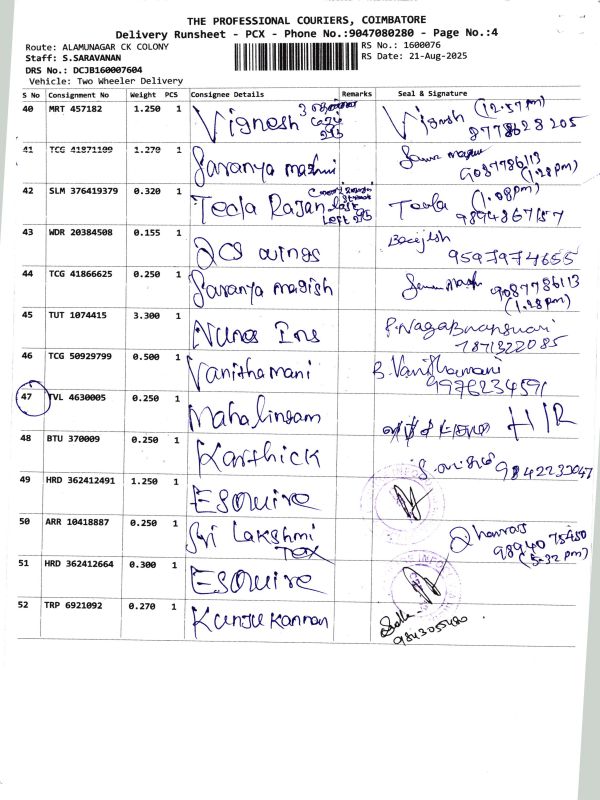 THE PROFESSIONAL COURIERS, COIMBATORE
Delivery Runsheet - PCX - Phone No.:9047080280 - Page No.:4
Route: ALAMUNAGAR CK COLONY RS No.: 1600076
Staff: S.SARAVANAN RS Date: 21-Aug-2025
DRS No.: DCJB160007604
Vehicle: Two Wheeler Delivery
S No Consignment No Weight PCS Consignee Details Remarks Seal & Signature
40 MRT 457182 1.250 1 Vignesh Vignesh (12.57 pm)
8778628205
41 TCG 41871109 1.270 1 Saranya 9087786113
(1.28 pm)
42 SLM 376419379 0.320 1 Teela Rajan Teela (1.08pm)
Left
43 WDR 20384508 0.155 1 QCS wings
9597974655
44 TCG 41866625 0.250 1 Saranya magish 9087786113
(1.28pm)
45 TUT 1074415 3.300 1
46 TCG 50929799 0.500 1 Vanithamani B. Vanithamani
9976234591
47 TVL 4630005 0.250 1 Mahalingam
48 BTU 370009 0.250 1 Karthick
49 HRD 362412491 1.250 1 Esquire
50 ARR 10418887 0.250 1 Sri Lakshmi
Tex
9894075450
(5.32 pm)
51 HRD 362412664 0.300 1 Esquire
52 TRP 6921092 0.270 1 Kunju Kannan